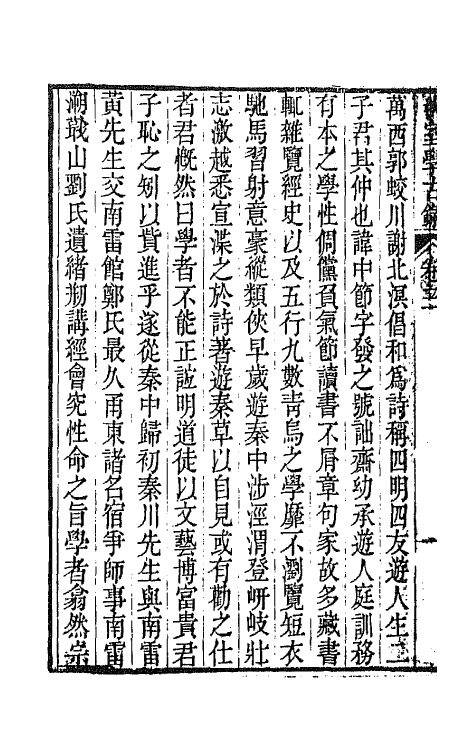 萬西郭蛟川謝北溟倡和爲詩稱四明四友遊人生二
子君其仲也諱中節字發之號訕齋幼承遊人庭訓務
有本之學性倜儻負氣節讀書不屑章句家故多藏書
輒雜覽經史以及五行九數靑烏之學靡不瀏覽短衣
馳馬習射意豪縱類俠早歲遊秦中涉涇渭登岍岐壯
志激越悉宣渫之於詩著遊秦草以自見或有勸之仕
者君慨然曰學者不能正誼明道徒以文藝博富貴君
子恥之矧以貲進乎遂從秦中歸初秦川先生與南雷
黃先生交南雷館鄭氏最久甬東諸名宿爭師事南雷
溯戢山劉氏遺緖刱講經會究性命之旨學者翕然宗